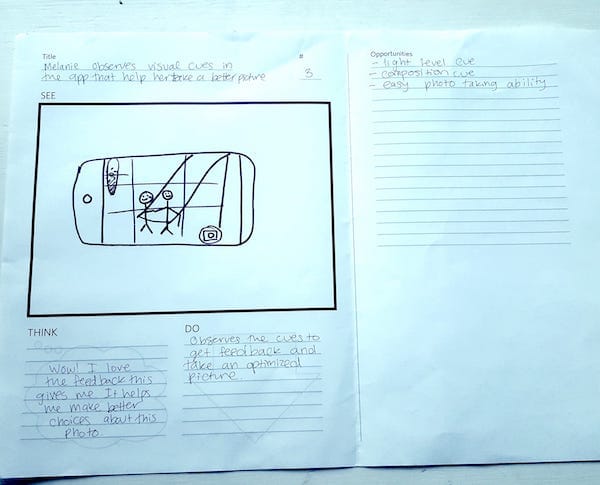 Title
Melanie observes visual cues in
the app that help her take a better picture
#
3
SEE
THINK
Wow! I love
the feedback this
gives me It helps
me make better
choices about this
photo
DO
Observes the cues to
get feedback and
take an optimized
picture.
Opportunities
- light level cue
- composition cue
- easy photo taking ability